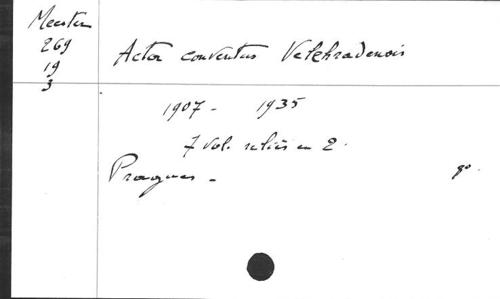 Meester
269
19
3
Acta conventus Velehradensis
1907 - 1935
7 vol. reliés en 2.
Pragues -
8º